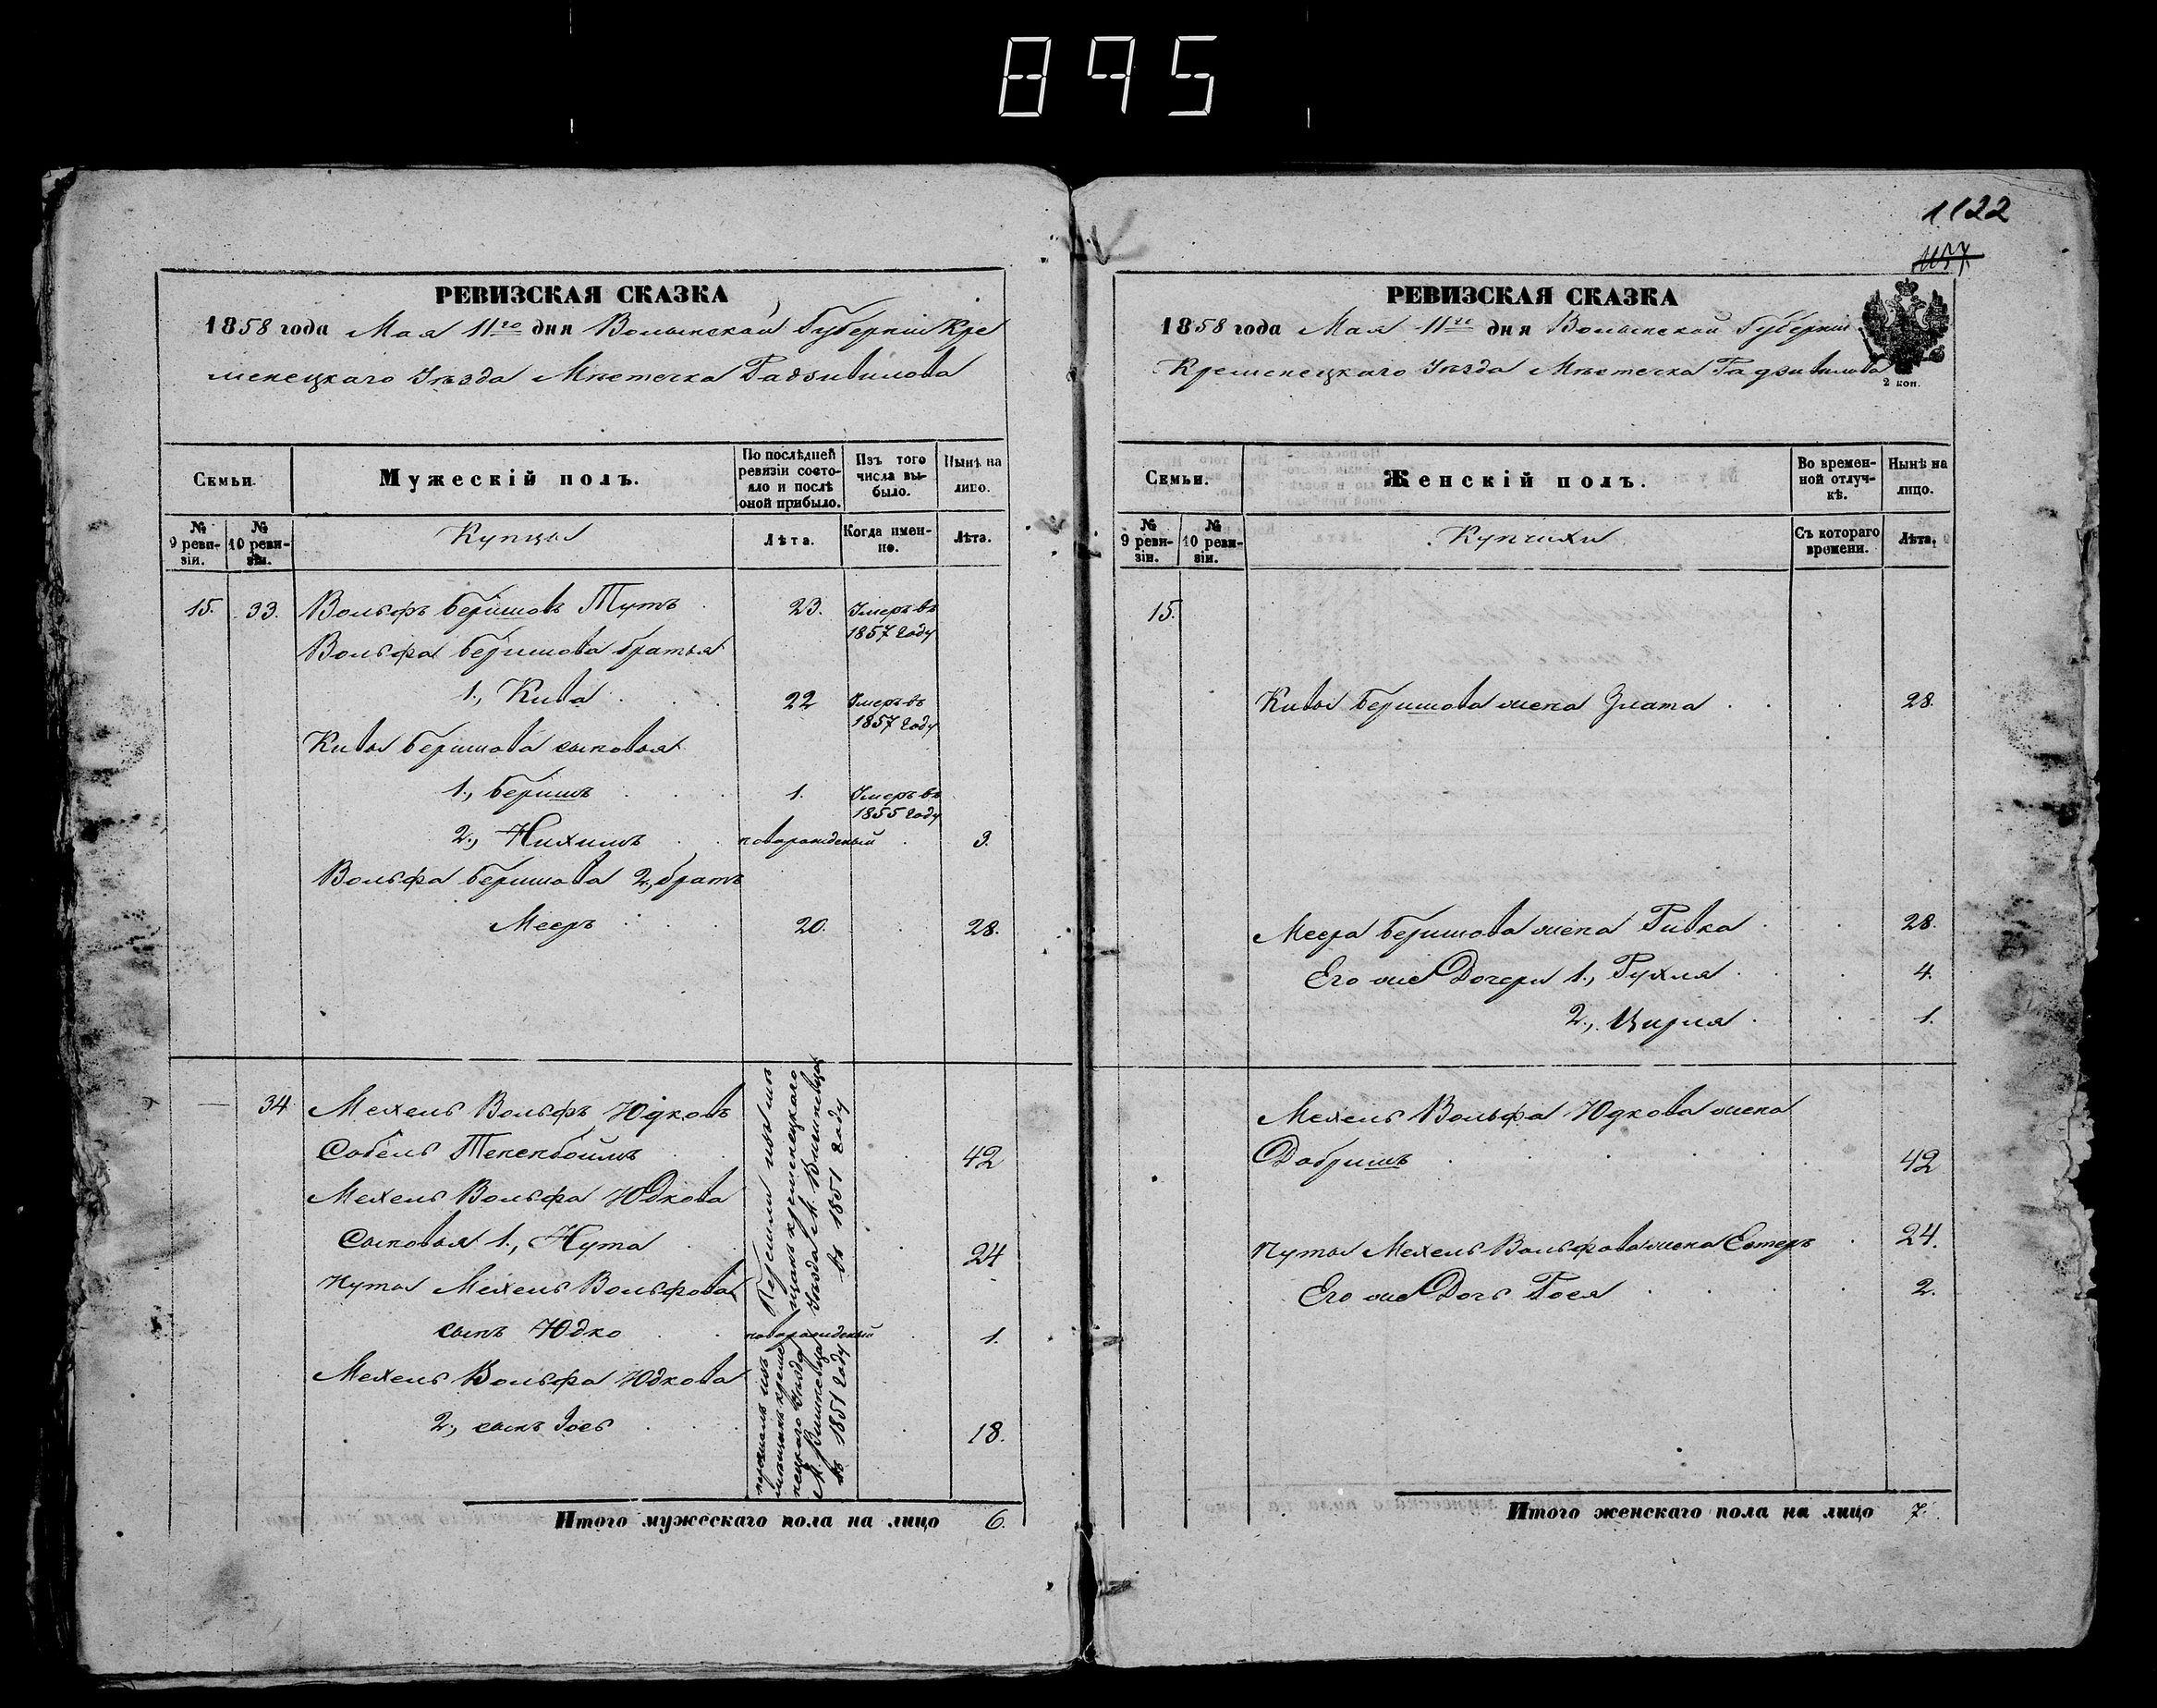 895
РЕВИЗСКАЯ СКАЗКА
1858 года Мая 11го дня Волынской Губернии Кре
менецкаго Уѣзда Мѣстечка Радзивилова
Семьи.
Мужескій полъ.
По послѣдней ревизіи состояло и послѣ оной прибыло.
Изъ того числа выбыло.
Нынѣ на лицо.
№ 9 ревизіи.
№ 10 ревизіи.
Купцы
Лѣта.
Когда именно.
Лѣта.
15. 33. Вольфъ Беришовъ Тутъ 23. Умеръ въ 1857 году
Вольфа Беришова братья
1., Кива 22 Умеръ въ 1857 году
Кивы Беришова сыновья
1., Беришъ 1. Умеръ въ 1855 году
2., Нихимъ новорожденый 3.
Вольфа Беришова 2, братъ
Мееръ 20. 28.
34 Мехель Вольфъ Юдковъ
Собель Тененбоимъ 42
Мехель Вольфа Юдкова
Сыновья 1., Нута 24
Нуты Мехель Вольфова
сынъ Юдко новорожденый 1.
Мехель Вольфа Юдкова
2, сынъ Iось 18.
Перешли изъ мѣ
щанъ кременецкаго
Уѣзда М. Вишневца
въ 1851 году
перешолъ изъ
мѣщанъ креме
нецкаго Уѣзда
М. Вишневца
въ 1851 году
Итого мужескаго пола на лицо 6.
1122
1157
РЕВИЗСКАЯ СКАЗКА
1858 года Мая 11го дня Волынской Губерніи
Кременецкаго Уѣзда Мѣстечка Радзивилова
2 коп.
Семьи.
Женскій полъ.
Во временной отлучкѣ.
Нынѣ на лицо.
№ 9 ревизіи.
№ 10 ревизіи.
Купчихи
Съ котораго времени.
Лѣта.
15.
Кивы Беришова жена Злата 28.
Меера Беришова жена Ривка 28.
Его же Дочери 1., Рухля 4.
2., Цирля 1.
Мехель Вольфа Юдкова жена
Добришъ 42
Нуты Мехель Вольфова жена Естеръ 24.
Его же Дочь Рося 2.
Итого женскаго пола на лицо 7.